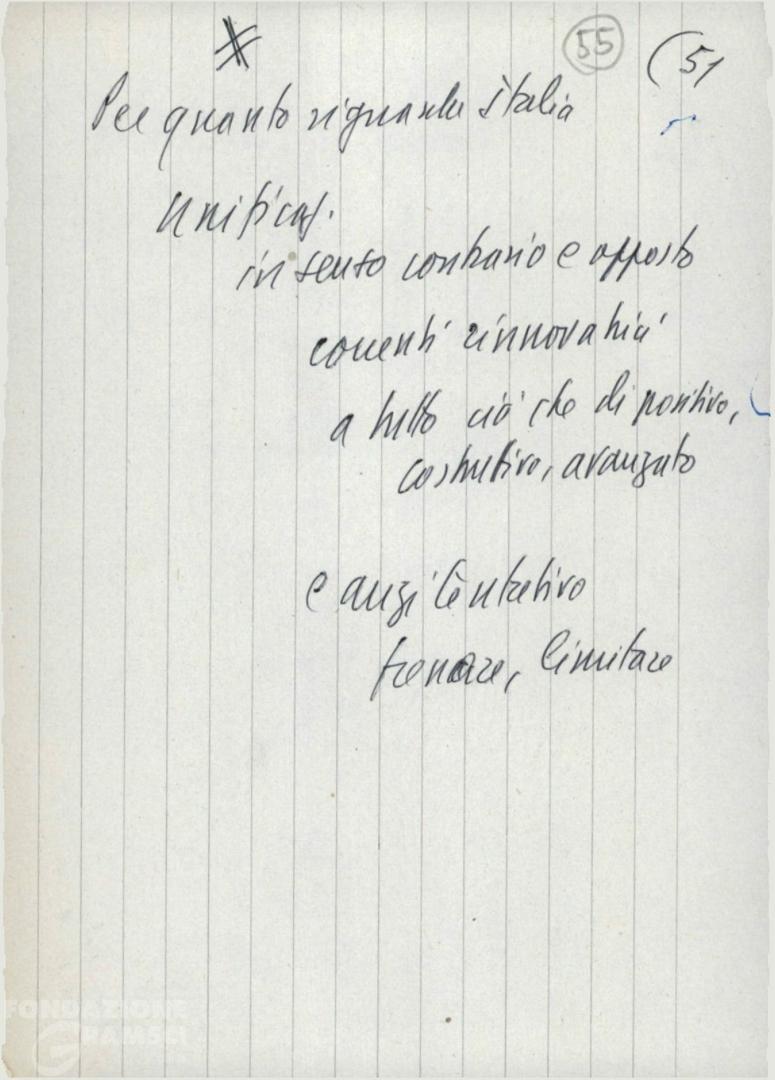 55 (51
Per quanto riguarda Italia
Unificaz.
in senso contrario e opposto
correnti rinnovatrici
a tutto ciò che di positivo,
costruttivo, avanzato
e anzi tentativo
frenare, limitare
FONDAZIONE
GRAMSCI